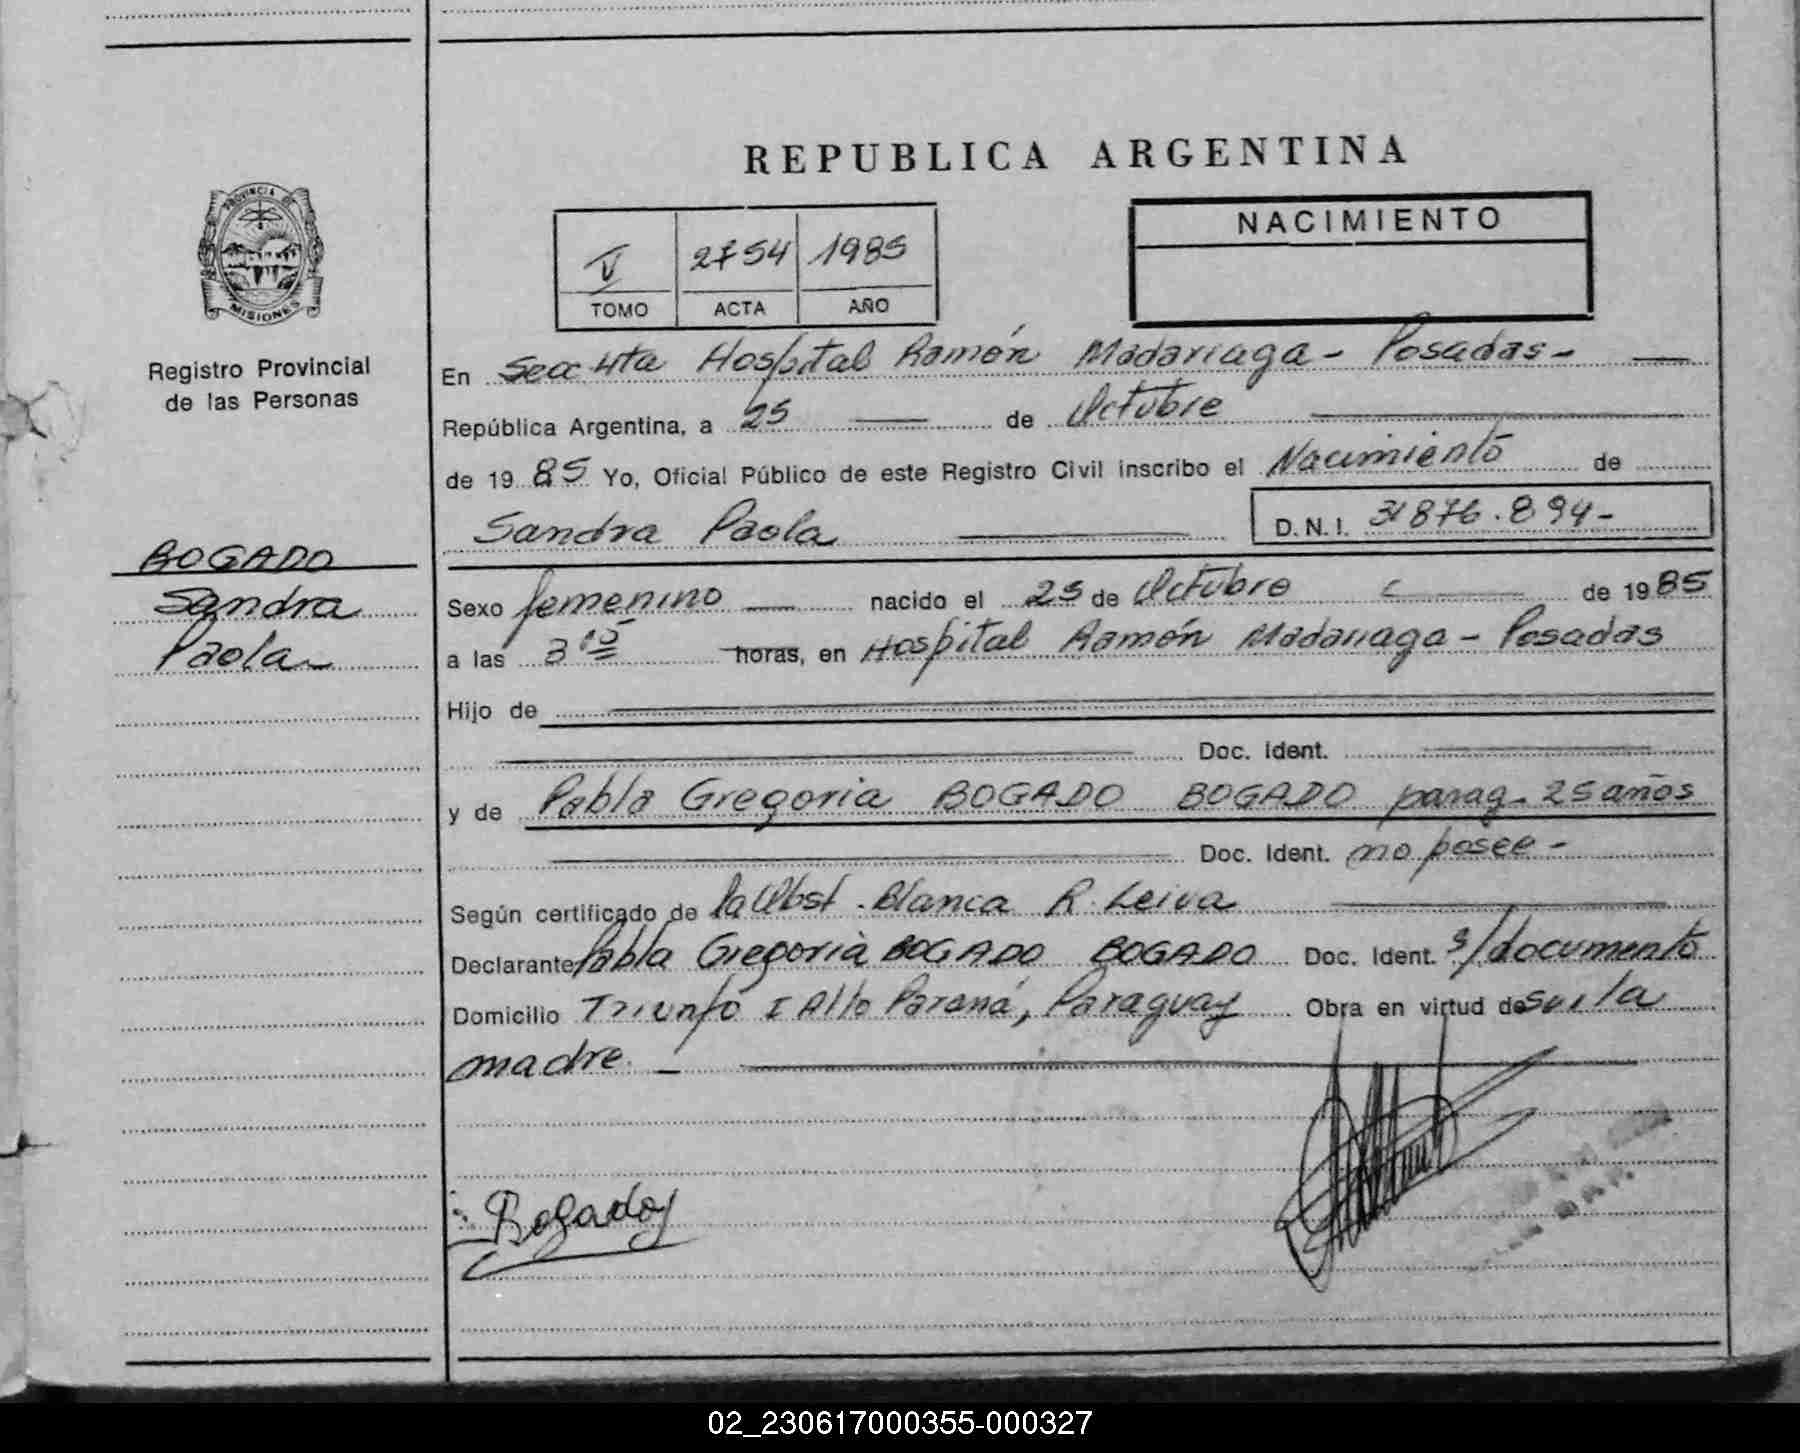 REPUBLICA ARGENTINA
PROVINCIA DE
MISIONES
Registro Provincial
de las Personas
V 2754 1985
TOMO ACTA AÑO
NACIMIENTO
En Secc 4ta Hospital Ramón Madariaga - Posadas -
República Argentina, a 25 de Octubre
de 1985 Yo, Oficial Público de este Registro Civil inscribo el Nacimiento de
Sandra Paola D.N.I. 31876.894-
BOGADO
Sandra
Paola
Sexo femenino nacido el 25 de Octubre de 1985
a las 3 15 horas, en Hospital Ramón Madariaga - Posadas
Hijo de
Doc. Ident.
y de Pabla Gregoria BOGADO BOGADO parag. 25 años
Doc. Ident. no posee -
Según certificado de la Obst. Blanca R. Leiva
Declarante Pabla Gregoria BOGADO BOGADO Doc. Ident. s/documento
Domicilio Triunfo I Alto Paraná, Paraguay Obra en virtud de ser la
madre. -
Bogado
02_230617000355-000327